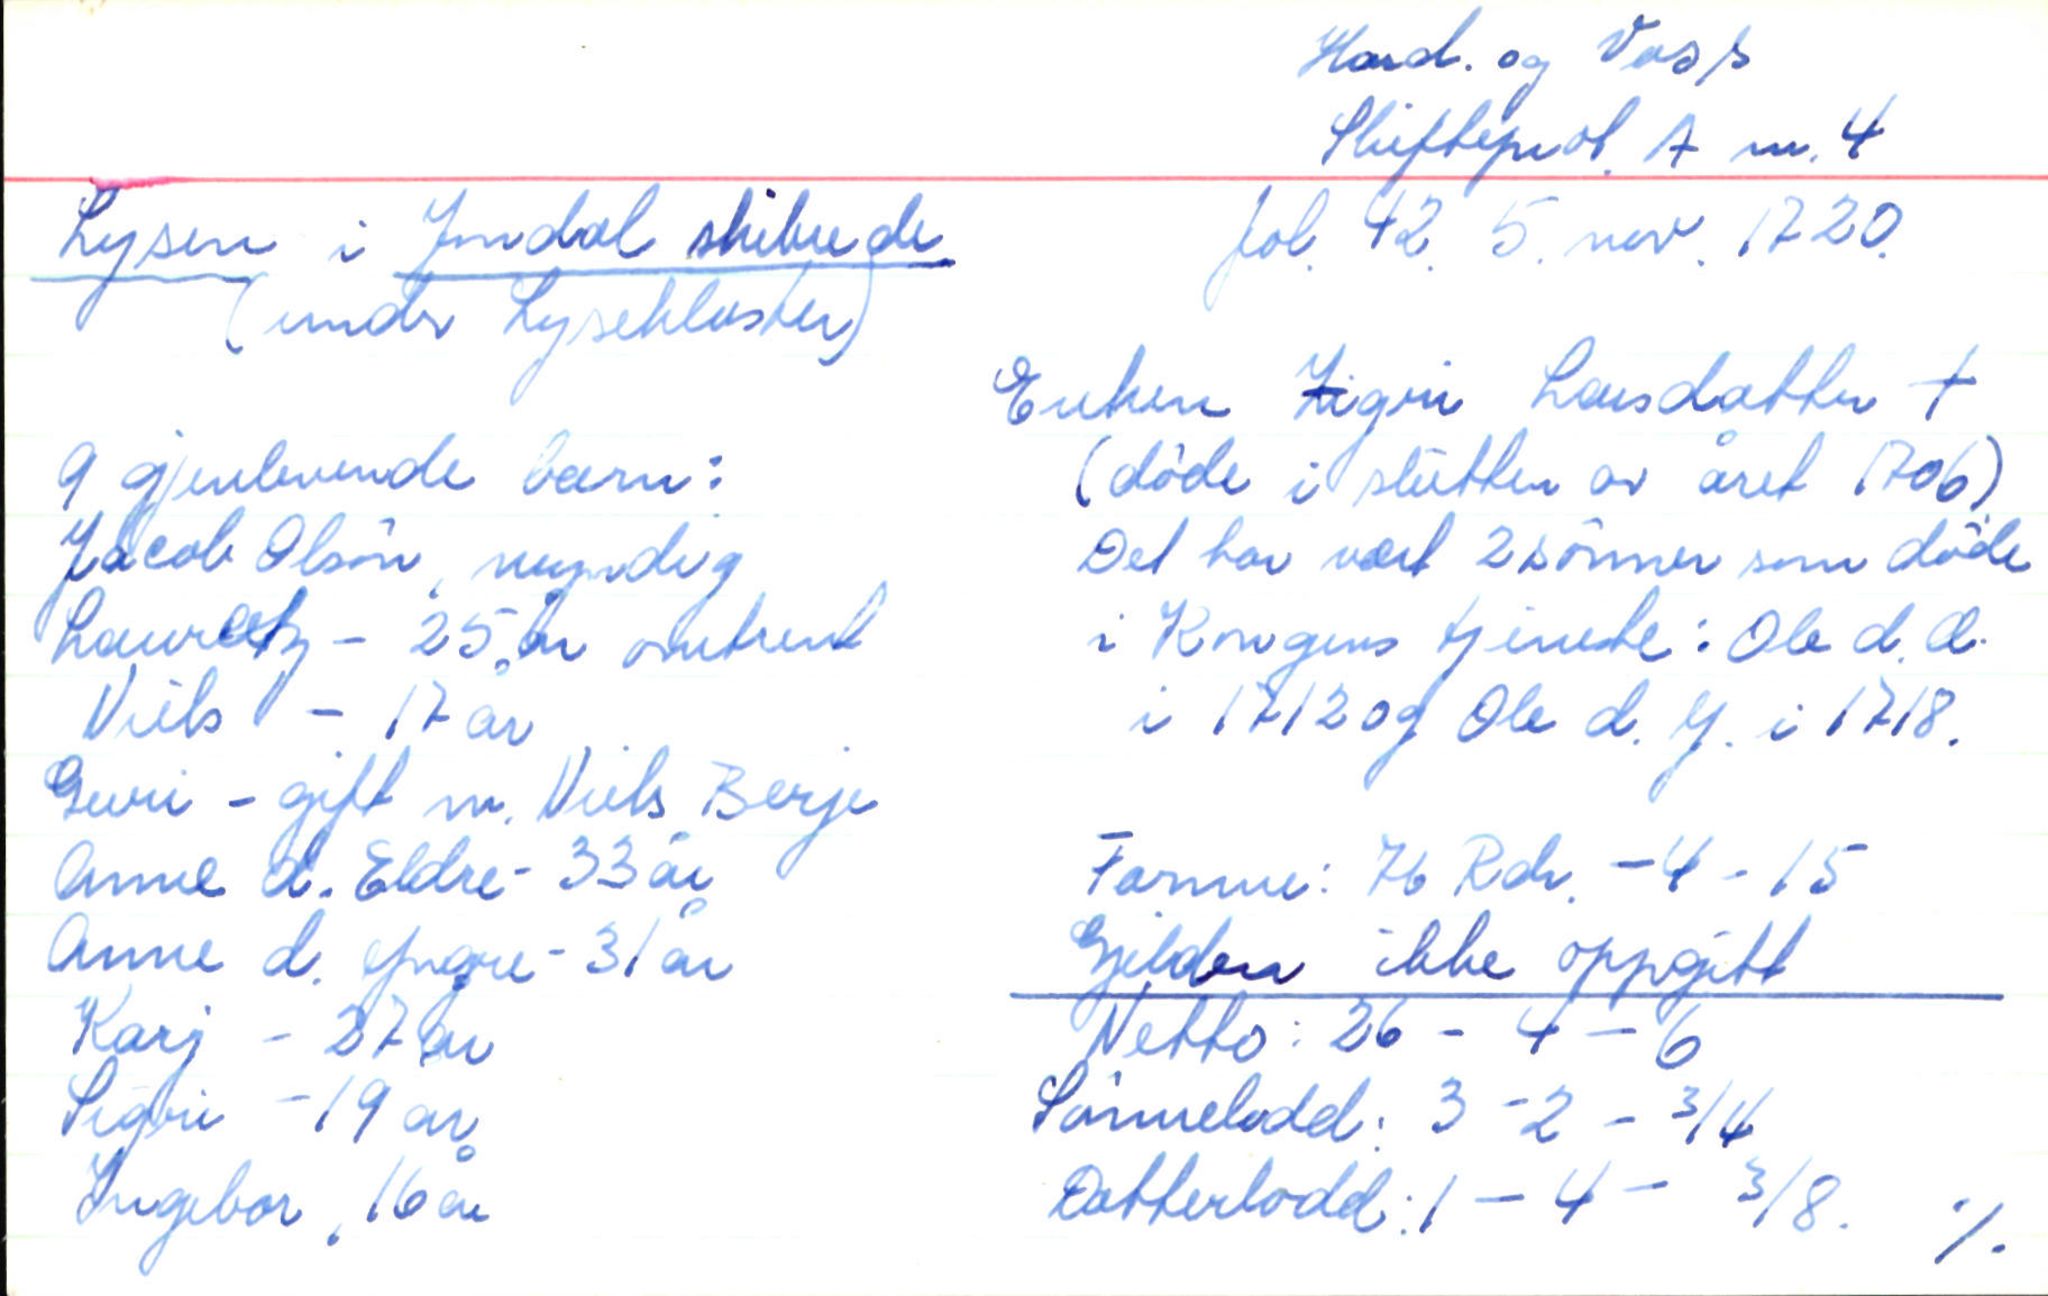 Hard. og Voss
Skifteprot. A nr. 4
Lysen i Jondal skibrede
(under Lysekloster)
fol. 42. 5. nov. 1720.
Enken Zigri Larsdatter †
(døde i slutten av året 1706)
Det har vært 2 sønner som døde
i Kongens tjeneste: Ole d. Æ.
i 1712 og Ole d. Y. i 1718.
9 gjenlevende barn:
Jacob Olsøn, myndig
Lauratz - 25 år omtrent
Niels - 17 år
Guri - gift m. Niels Berje
Anne d. Eldre - 33 år
Anne d. Yngre - 31 år
Karj - 27 år
Sigri - 19 år
Ingebor, 16 år
Formue: 76 Rdr. - 4 - 15
Gjelden ikke oppgitt
Netto: 26 - 4 - 6
Sønnelodd: 3 - 2 - 3/4
Datterlodd: 1 - 4 - 3/8. ./.